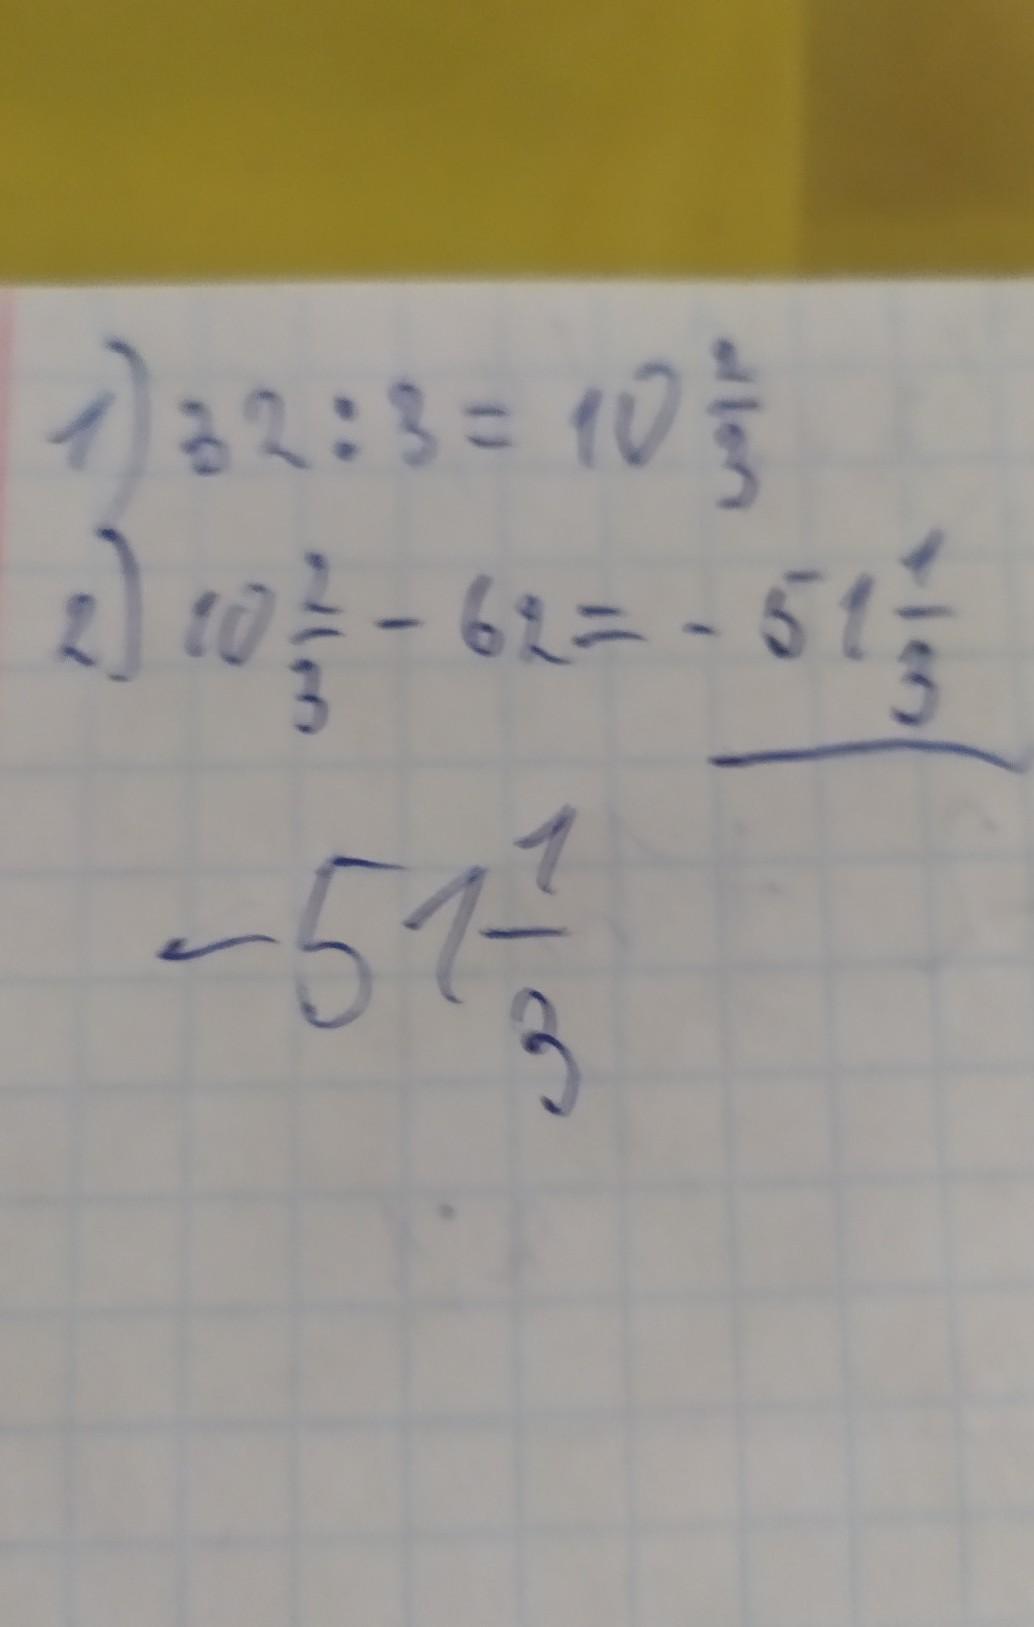 1) 32 : 3 = 10 2/3
2) 10 2/3 - 62 = - 51 1/3
- 51 1/3